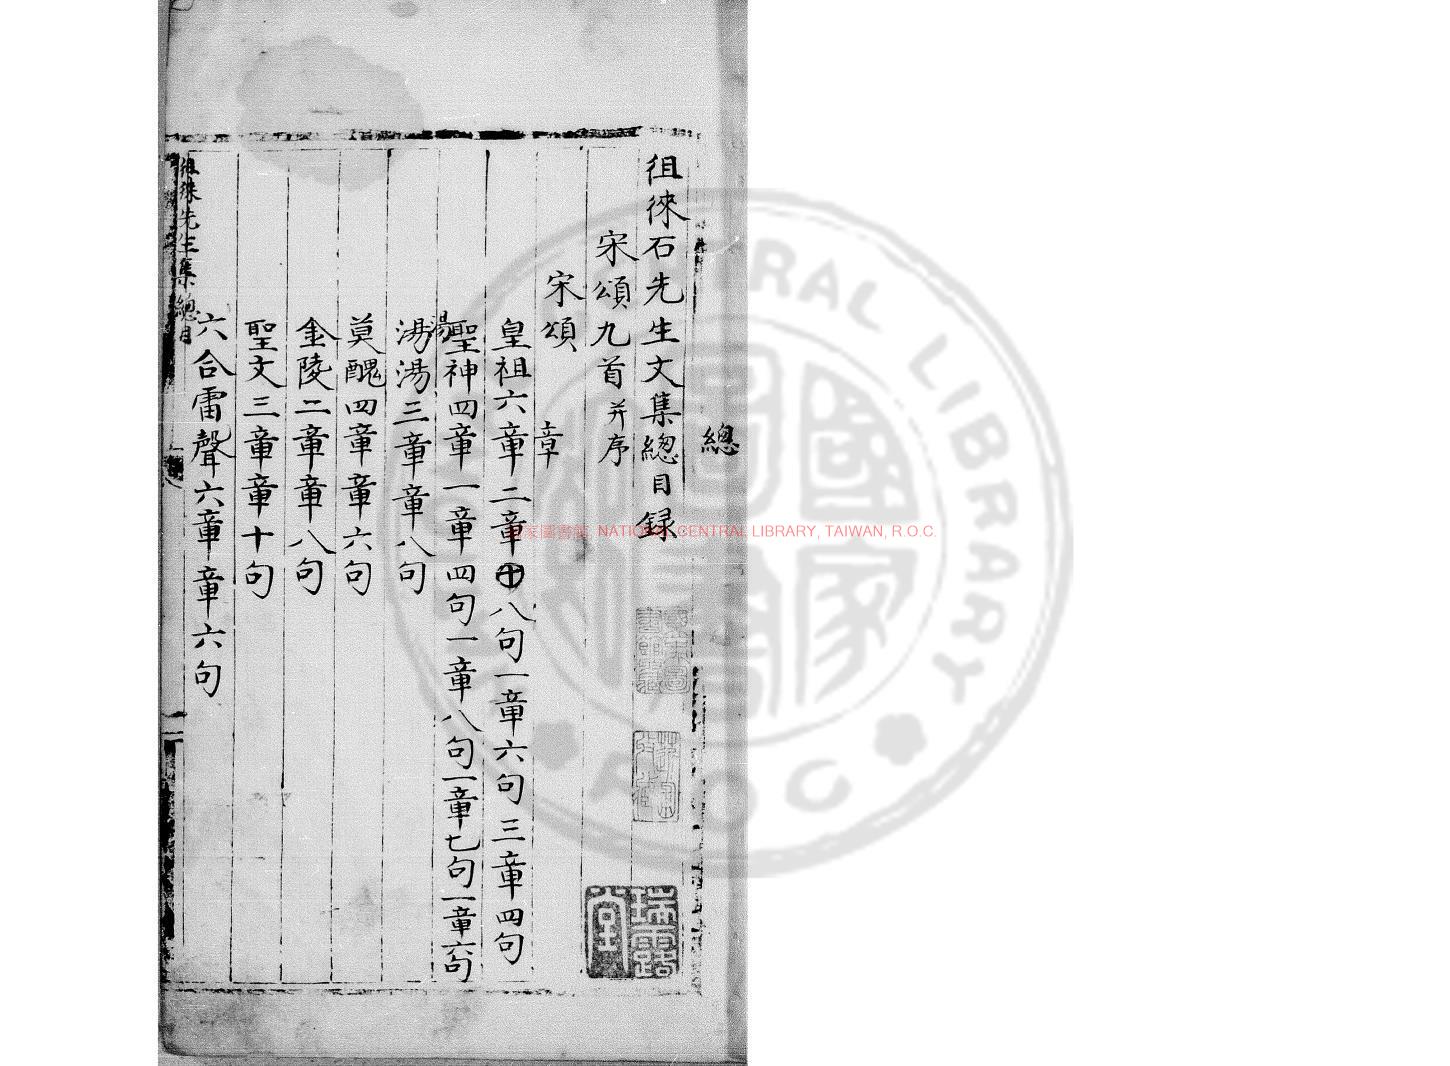 總
徂徠石先生文集總目録
宋頌九首并序
宋頌 章
皇祖六章二章八句一章六句三章四句
聖神四章一章四句一章八句一章七句一章六句
湯湯三章章八句
湯
莫醜四章章六句
金陵二章章八句
聖文三章章十句
六合雷聲六章章六句
徂徠先生集總目
瑞露堂
國家圖書館, NATIONAL CENTRAL LIBRARY, TAIWAN, R.O.C.
CENTRAL LIBRARY
R O C
國家圖書館